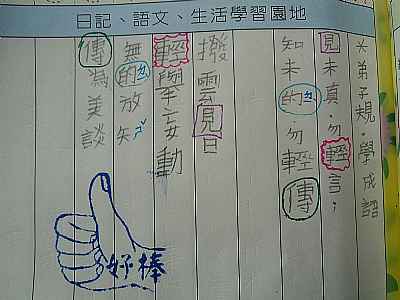 日記、語文、生活學習園地
※弟子規·學成語
見未真,勿輕言;
知未的,勿輕傳
撥雲見日
輕舉妄動
無的放矢
傳為美談
好棒